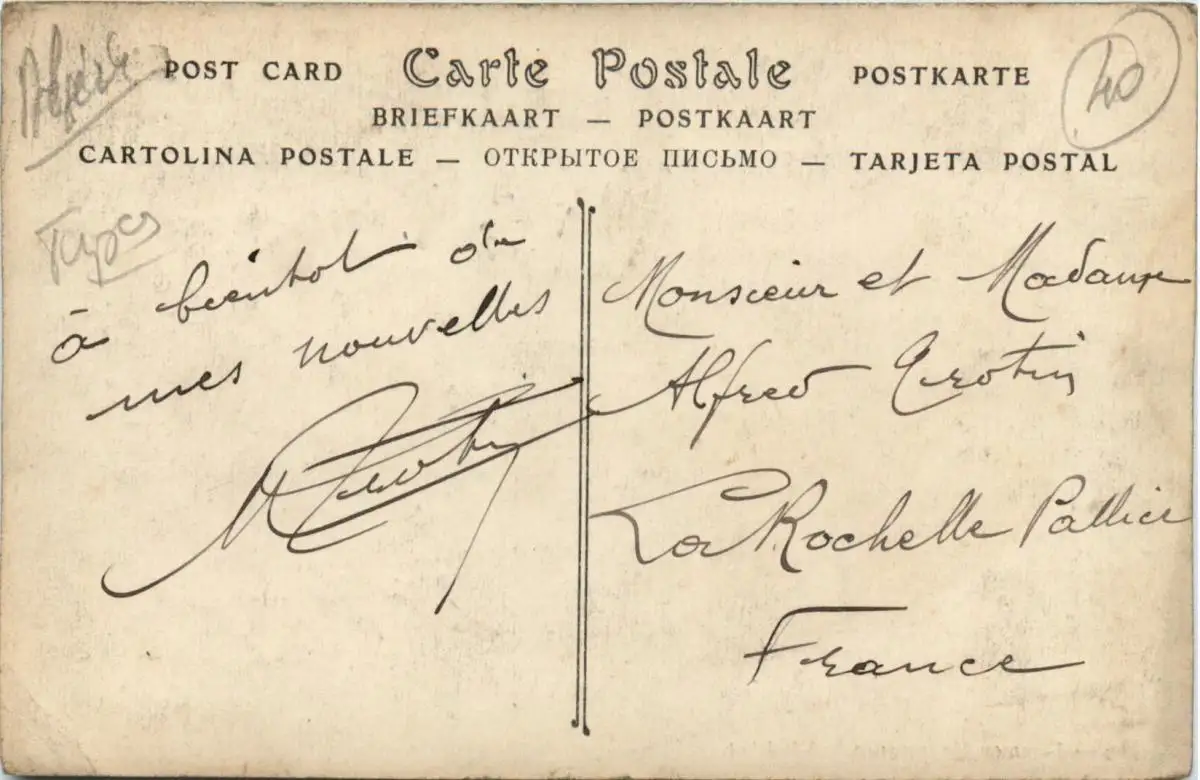 Algérie
POST CARD Carte Postale POSTKARTE
40
BRIEFKAART — POSTKAART
CARTOLINA POSTALE — ОТКРЫТОЕ ПИСЬМО — TARJETA POSTAL
Types
à bientot de
mes nouvelles
Monsieur et Madame
Alfred Grotin
La Rochelle Pallice
France